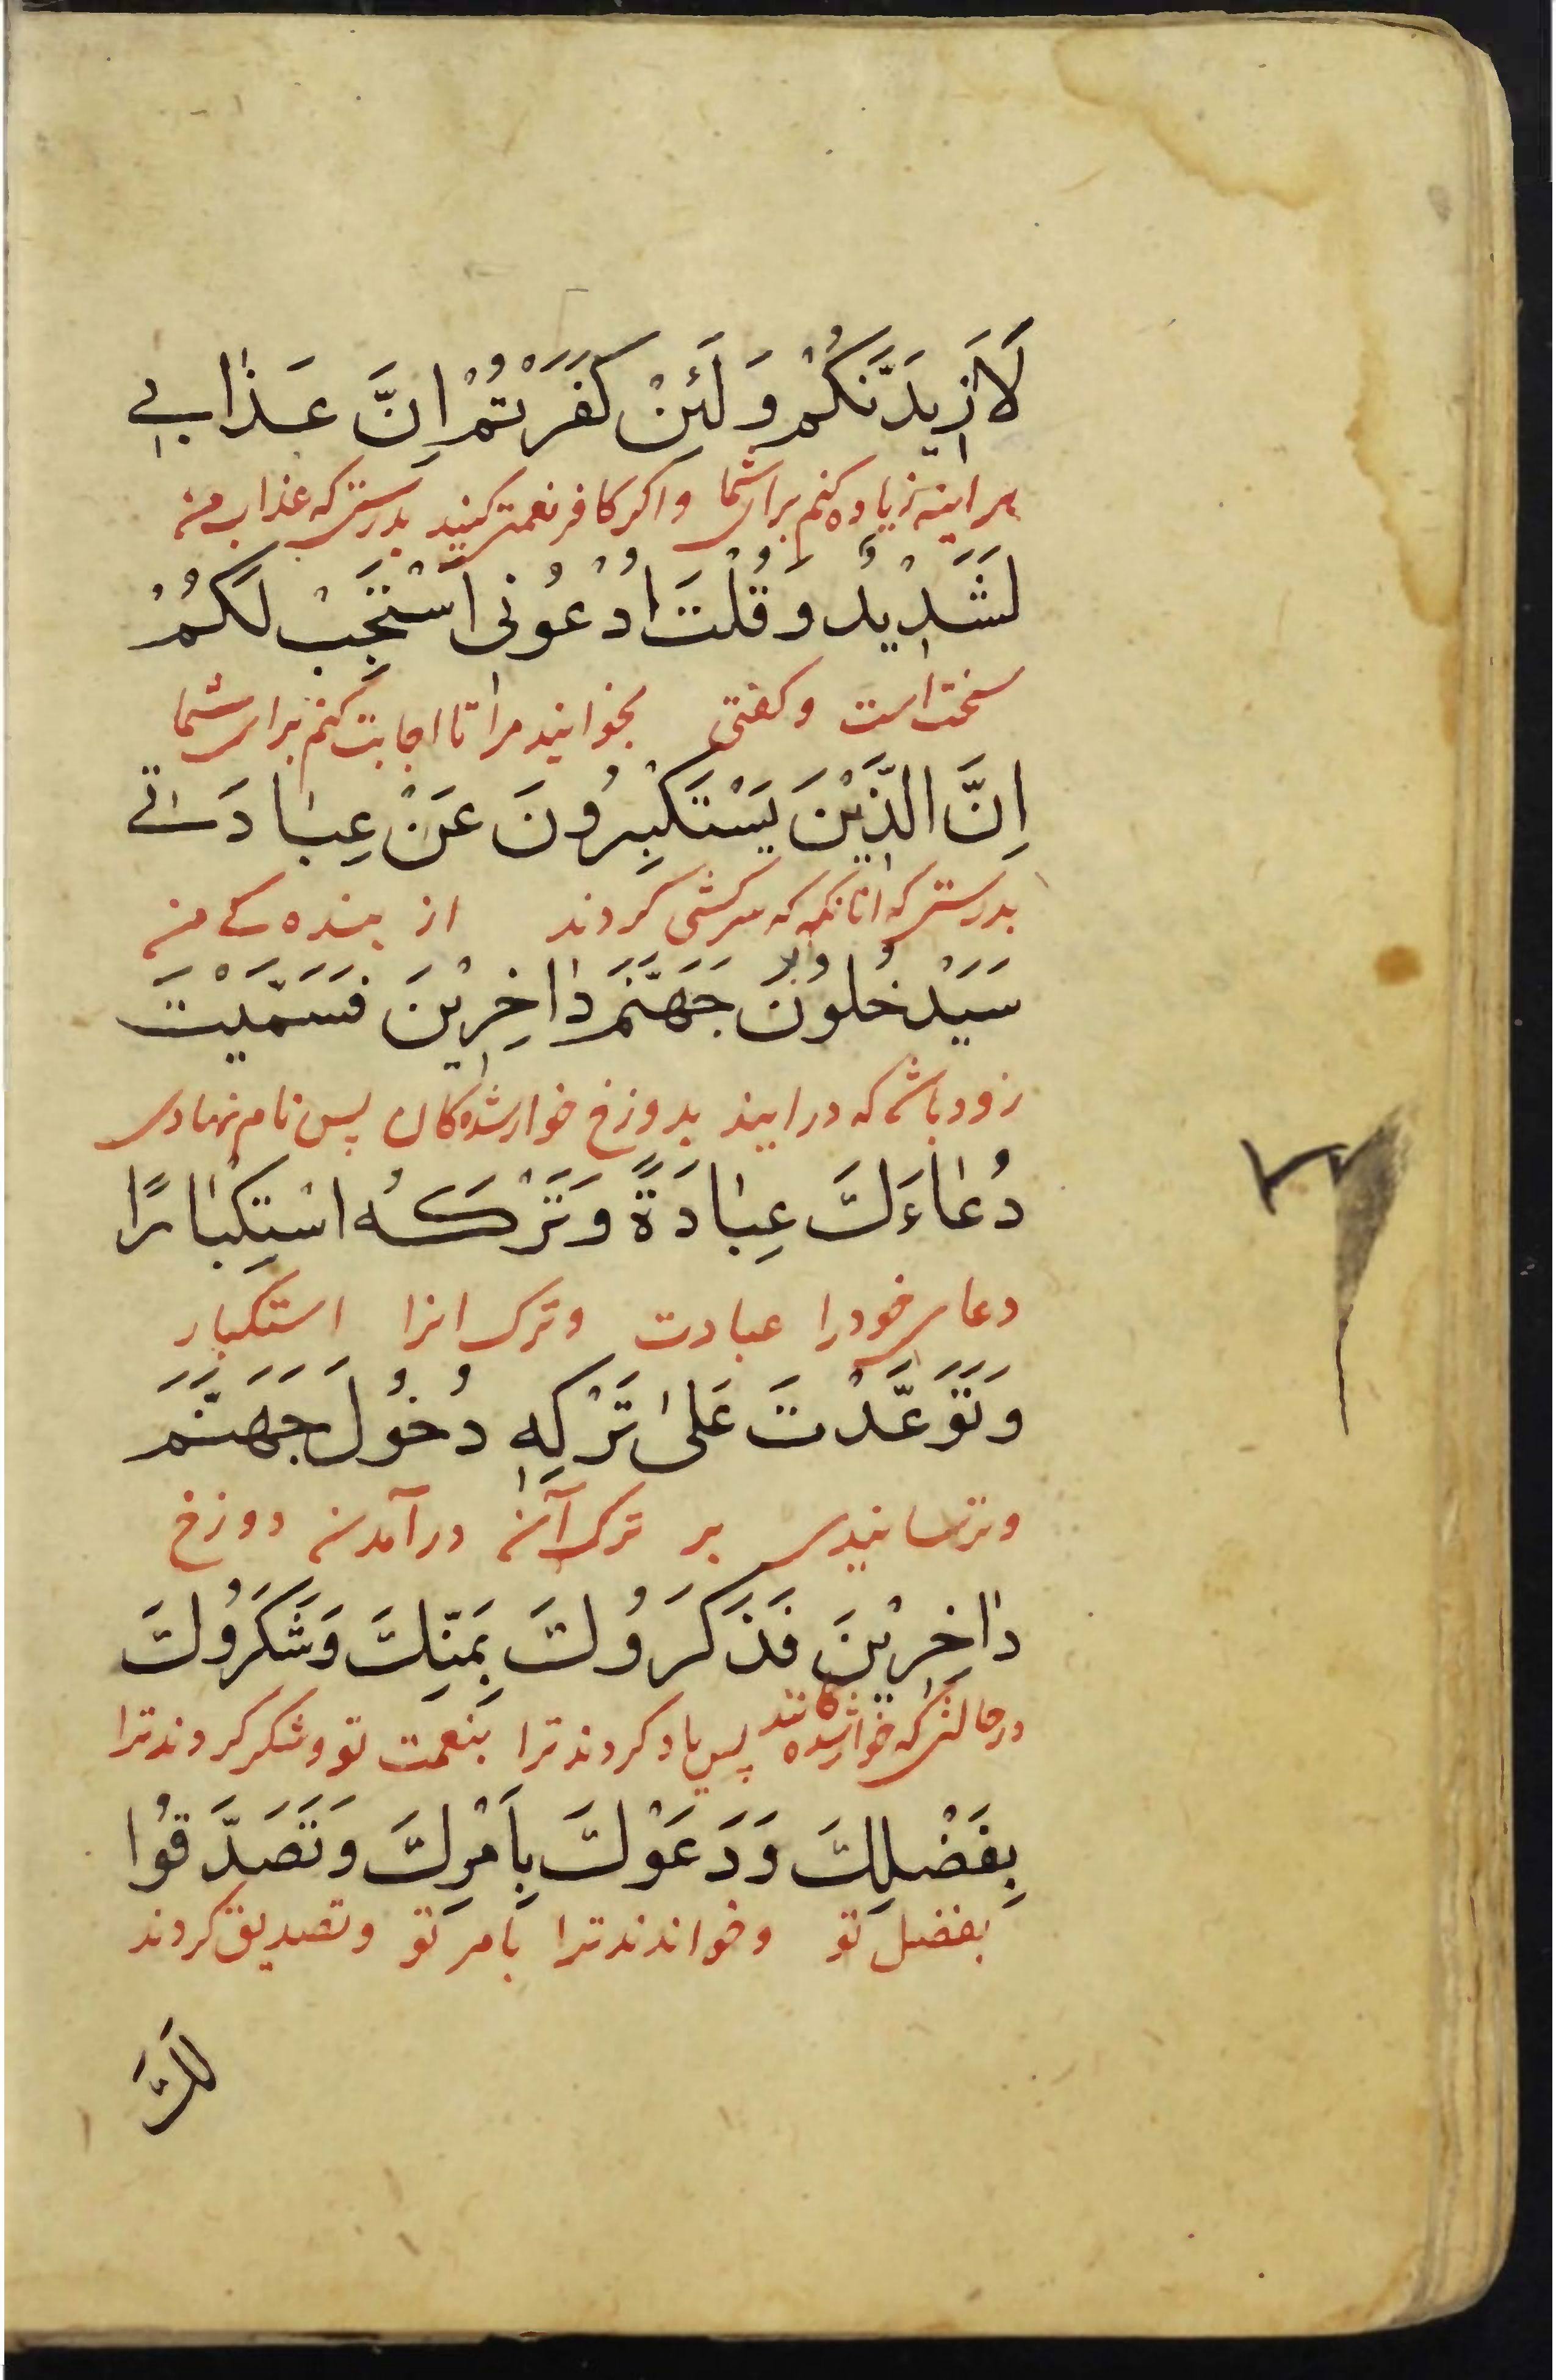 لَاَزِيدَنَّكُمْ وَلَئِنْ كَفَرْتُمْ اِنَّ عَذٰابِي
هر اینه زیاده کنم برای شما واکر کافر نعمتی کنید بدرستی که عذاب من
لَشَدِيْدٌ وَقُلْتَ ادْعُونِى اَسْتَجِبْ لَكُمْ
سختست است وکفتی بخوانید مرا تا اجابت کنم برای شما
اِنَّ الَّذِيْنَ يَسْتَكْبِرُونَ عَنْ عِبٰادَتِي
بدرستی که انانکه که سرکشی کردند از بنده کے من
سَيَدْخُلُونَ جَهَنَّمَ دٰاخِرِيْنَ فَسَمَّيْتَ
زود باشد که درایند بدوزخ خوارشده کان پس نام نهادی
دُعٰاءَكَ عِبٰادَةً وَتَرْكَهُ اسْتِكْبٰارًا
دعای خودرا عبادت وترک انرا استکبار
وَتَوَعَّدْتَ عَلىٰ تَرْكِهِ دُخُولَ جَهَنَّمَ
وترسانیدی بر ترک آن درآمدن دوزخ
دٰاخِرِيْنَ فَذَكَرُوْكَ بِمَنِّكَ وَشَكَرُوْكَ
درحالتی که خوارشده کانند پس یاد کردند ترا بنعمت تو وشکر کردند ترا
بِفَضْلِكَ وَدَعَوْكَ بِاَمْرِكَ وَتَصَدَّقُوْا
بفضل تو وخواندند ترا بامر تو وتصدیق کردند
لَكَ